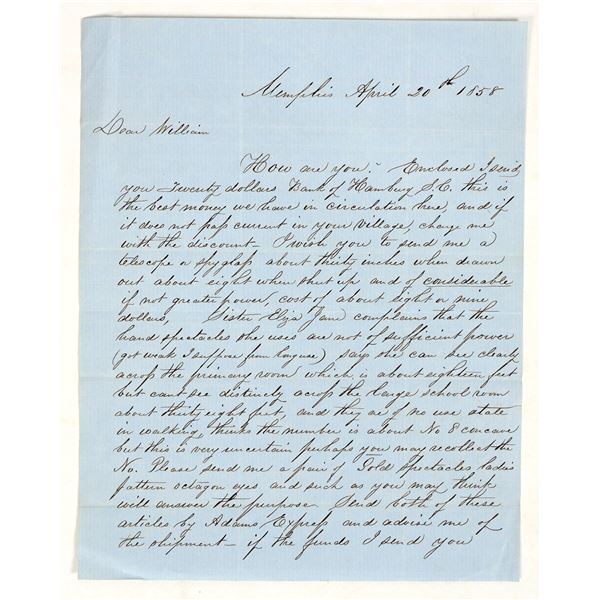 Memphis April 20th 1858
Dear William
How are you? Enclosed I send
you Twenty dollars Bank of Hamburg S.C. this is
the best money we have in circulation here, and if
it does not pass current in your village, charge me
with the discount- I wish you to send me a
telescope or spyglass about thirty inches when drawn
out about eight when shut up and of considerable
if not greater power, cost of about eight or nine
dollars, Sister Eliza Jane complains that the
hand spectacles she uses are not of sufficient power
(got weak I suppose from long use) says she can see clearly
across the primary room which is about eighteen feet
but cant see distinctly across the large school room
about thirty eight feet, and they are of no use atall
in walking, thinks the number is about No 8 concave
but this is very uncertain perhaps you may recollect the
No. Please send me a pair of Gold spectacles ladies
pattern octagon eyes and such as you may think
will answer the purpose Send both of these
articles by Adams Express and advise me of
the shipment- if the funds I send you